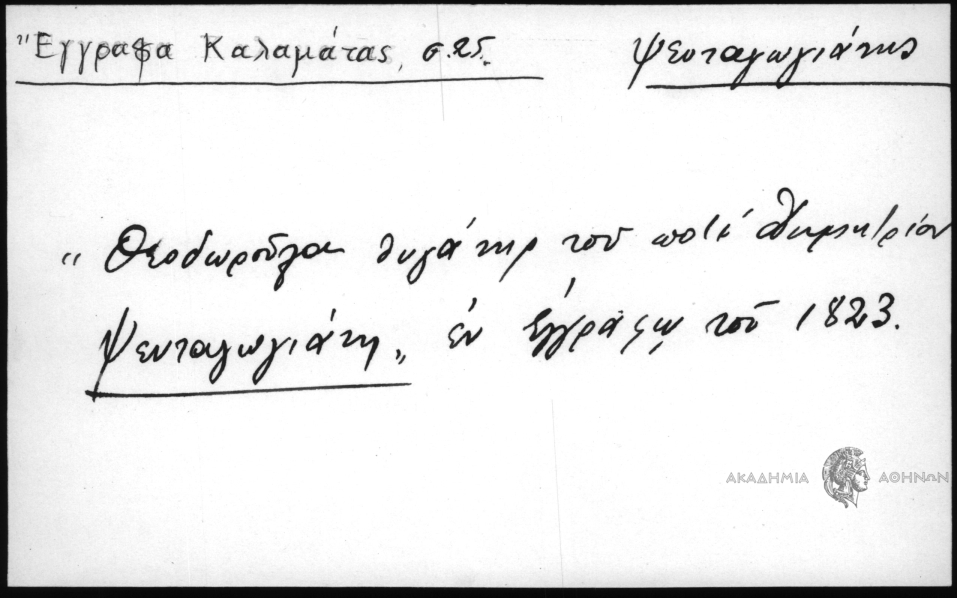 "Έγγραφα Καλαμάτας, σ.25. Ψευταγωγιάτης
"Θεοδωρούλα θυγάτηρ του ποτέ Δημητρίου
Ψευταγωγιάτη" ἐν ἐγγράφῳ τοῦ 1823.
ΑΚΑΔΗΜΙΑ ΑΘΗΝΩΝ